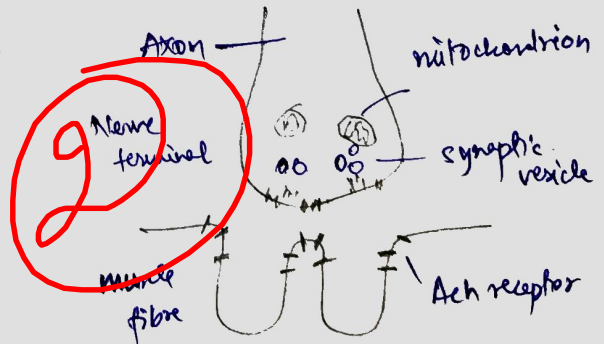 Axon
mitochondrion
2
Nerve
terminal
synaptic
vesicle
muscle
fibre
Ach receptor